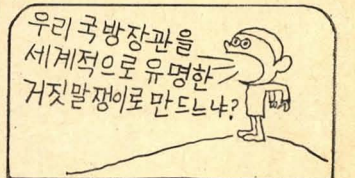 우리 국방장관을
세계적으로 유명한
거짓말쟁이로 만드느냐?